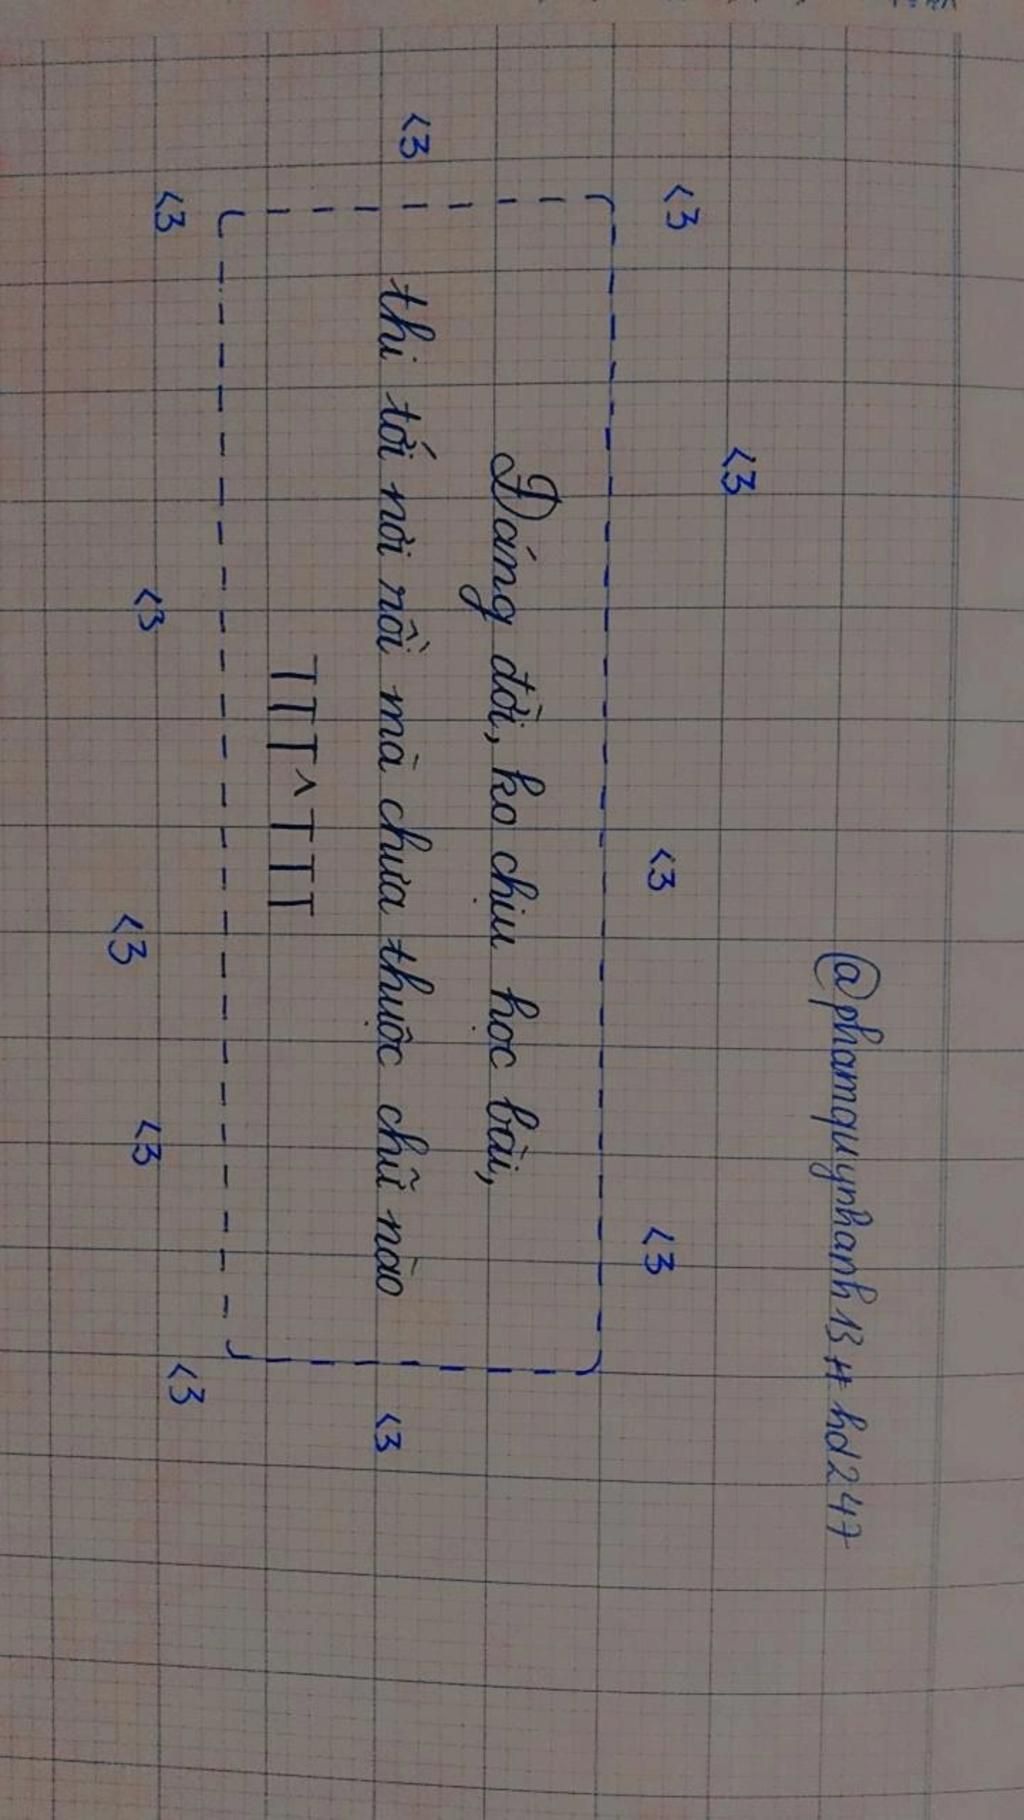 @phamquynhanh13#hd247
<3
<3
<3
<3
<3
Đáng đời, ko chịu học bài,
thi tới nơi rồi mà chưa thuộc chữ nào
TTT^TTT
<3
<3
<3
<3
<3
<3